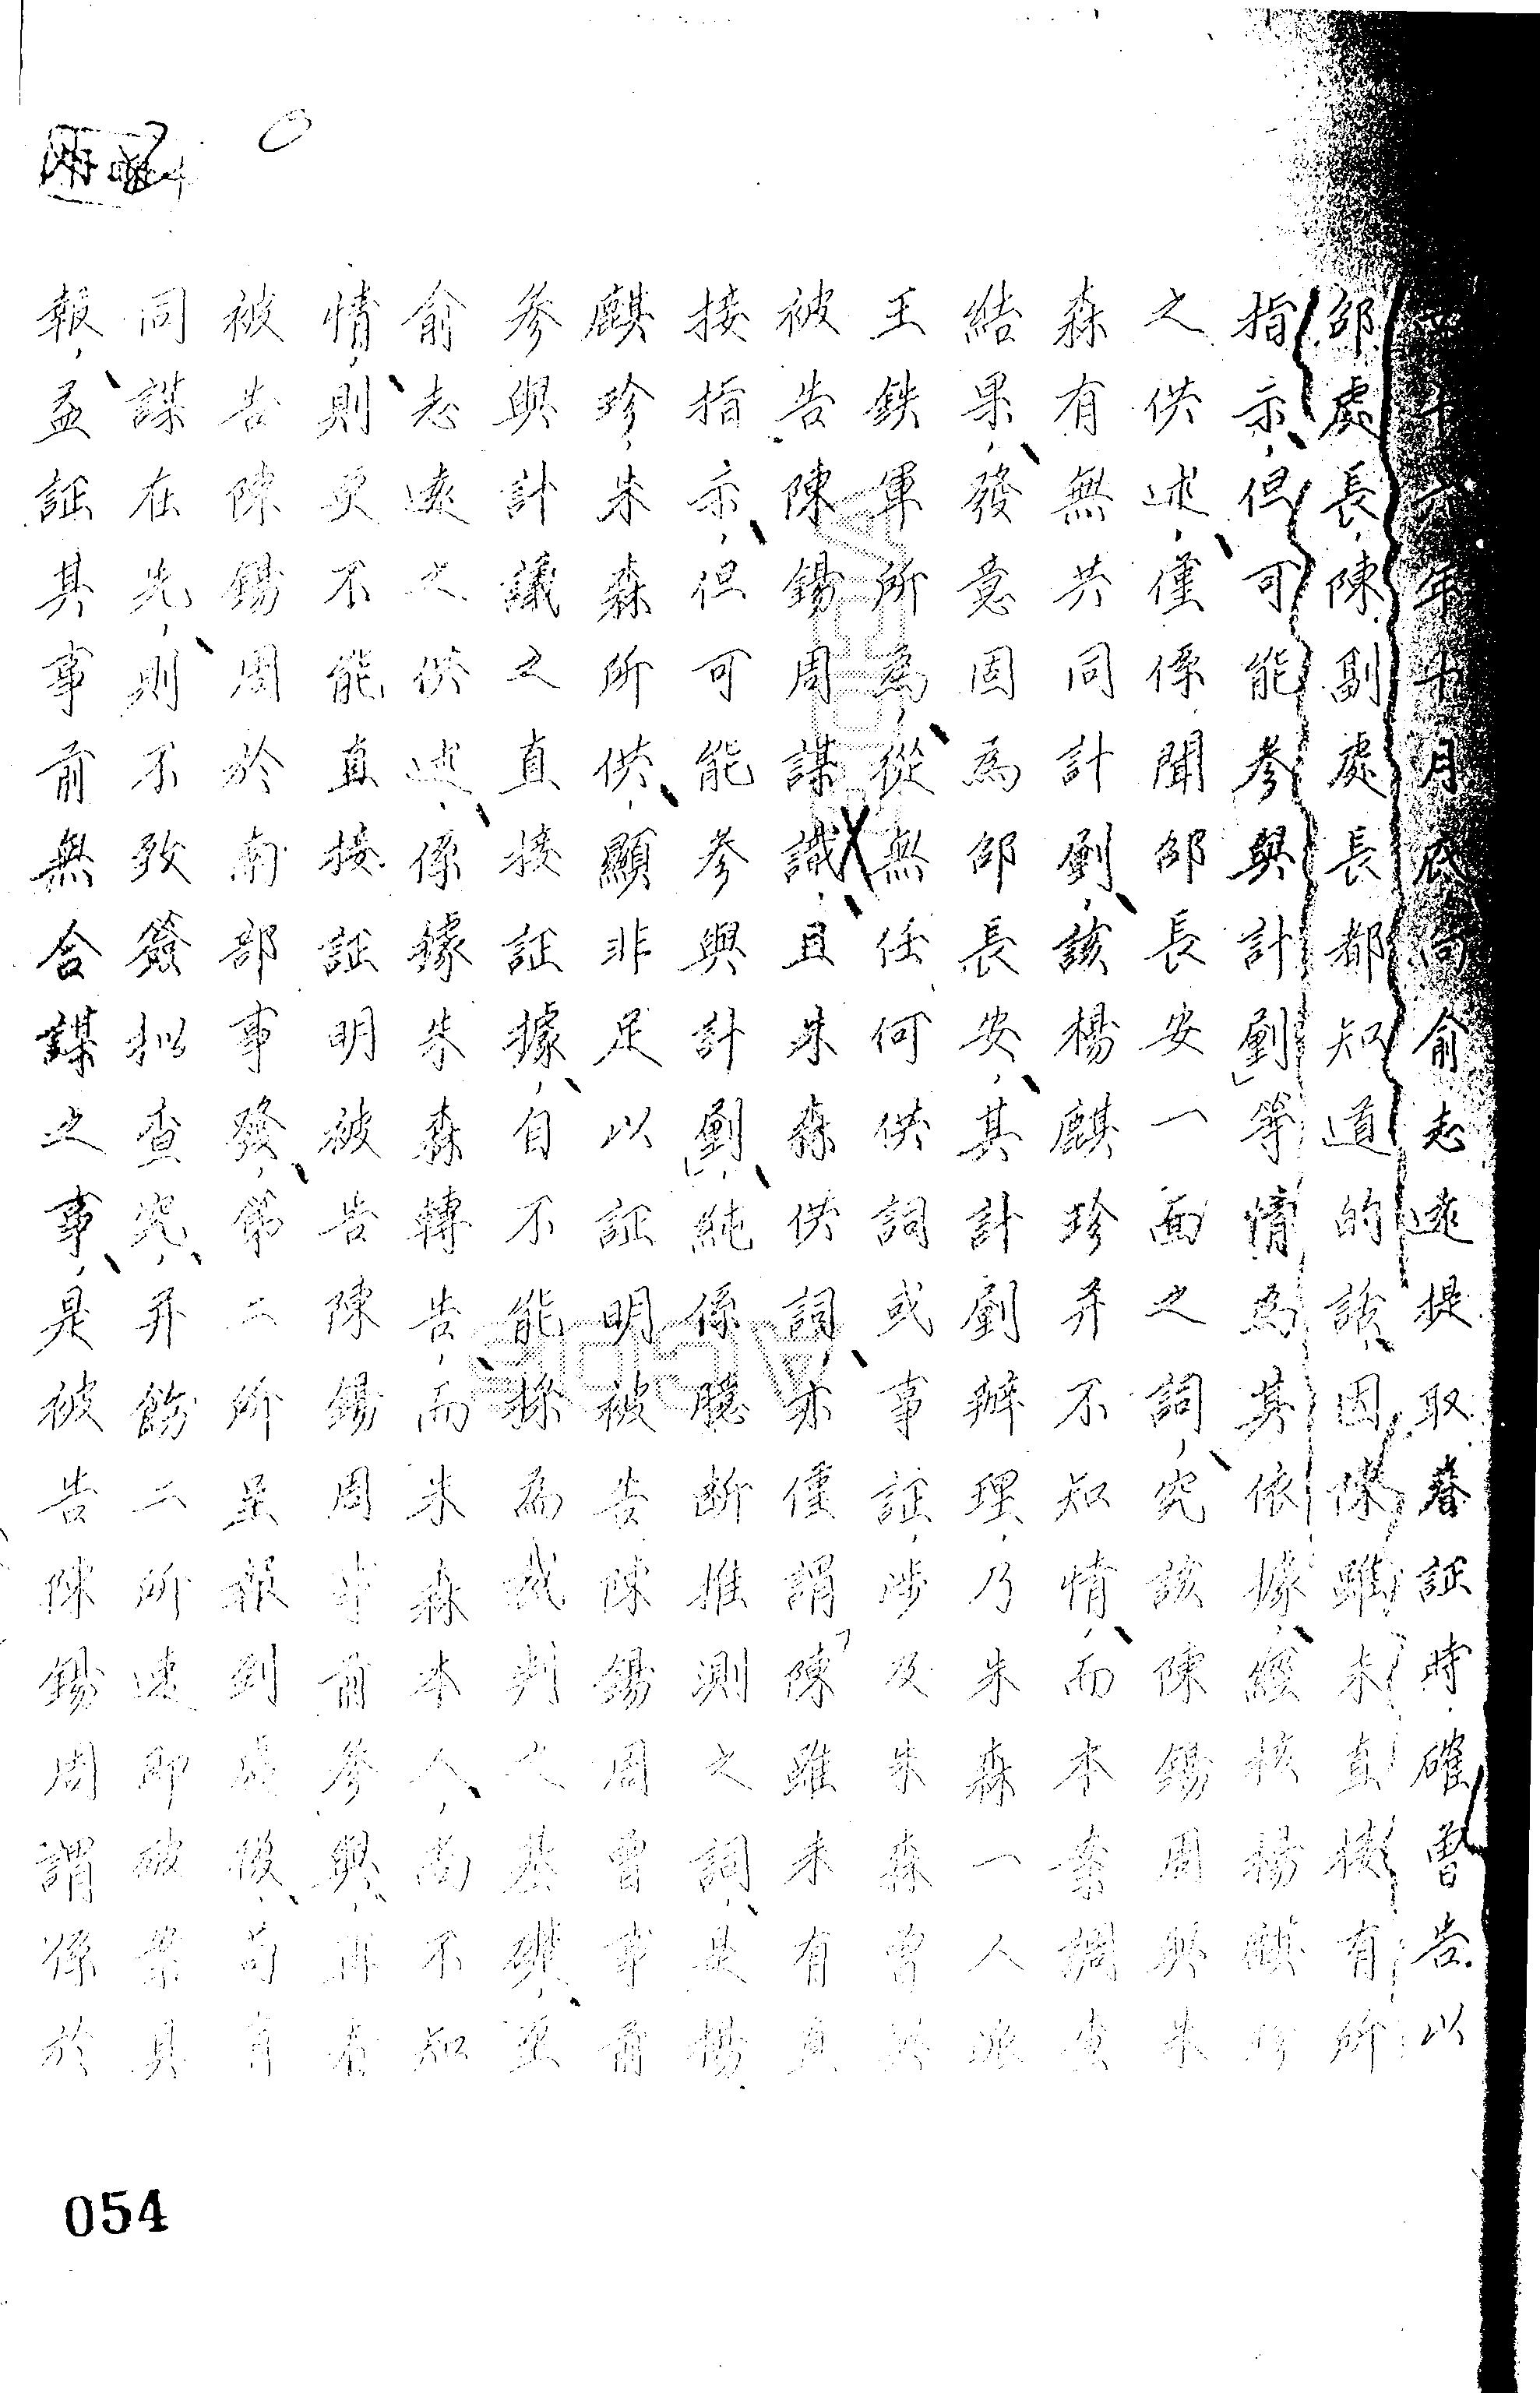 四十六年十月底向俞志遠提取養証時，確曾告以
邵處長，陳副處長都知道的該，因僕雖未直接有所
指示，但可能參與計劃」等情為其依據，經核楊麒珍
之供述，僅係聞邵長安一面之詞，究該陳錫周與朱
森有無共同計劃，該楊麒珍并不知情，而本案調查
結果，發意固為邵長安，其計劃辦理，乃朱森一人派
王鉄軍所為，從無任何供詞或事証，涉及朱森曾與
被告陳錫周謀議，且朱森供詞，亦僅謂「陳雖未有直
接指示，但可能參與計劃」，純係臆斷推測之詞，是楊
麒珍，朱森所供，顯非足以証明被告陳錫周曾事前
參與計議之直接証據，自不能採為裁判之基礎，至
俞志遠之供述，係據朱森轉告，而朱森本人，尚不知
情，則更不能直接証明被告陳錫周事前參與，再者
被告陳錫周於南部事發，第二所呈報到處後，苟有
同謀在先，則不致簽擬查究，并飭二所速即破案具
報，益証其事前無合謀之事，是被告陳錫周謂係於
054